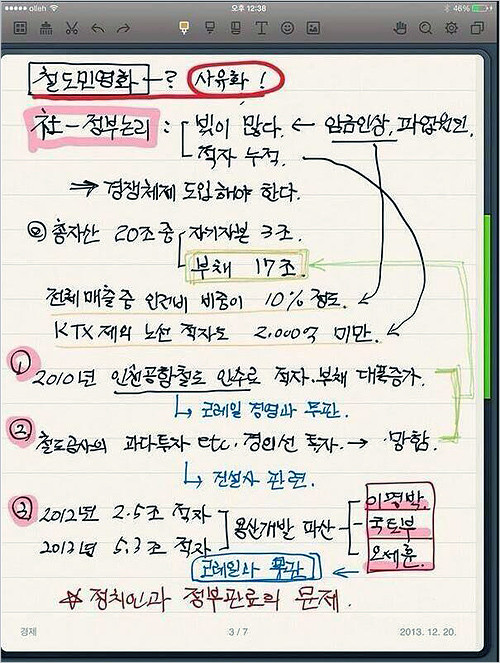 olleh 오후 12:38 46%
철도민영화 - ? 사유화!
社 - 정부논리 : 빚이 많다. ← 임금인상, 파업원인.
적자 누적.
⇒ 경쟁체제 도입해야 한다.
◎ 총자산 20조 중 자기자본 3조.
부채 17조.
전체 매출 중 인건비 비중이 10% 정도.
KTX 제외 노선 적자도 2,000억 미만.
① 2010년 인천공항철도 인수로 적자.부채 대폭증가.
↳ 코레일 경영과 무관.
② 철도공사의 과다투자 etc. 경의선 투자. → 망함.
↳ 건설사 관련.
③ 2012년 2.5조 적자 이명박.
용산개발 파산 국토부
2013년 5.3조 적자 오세훈.
코레일사 ←
☆ 정치인과 정부관료의 문제.
경제 3 / 7 2013. 12. 20.